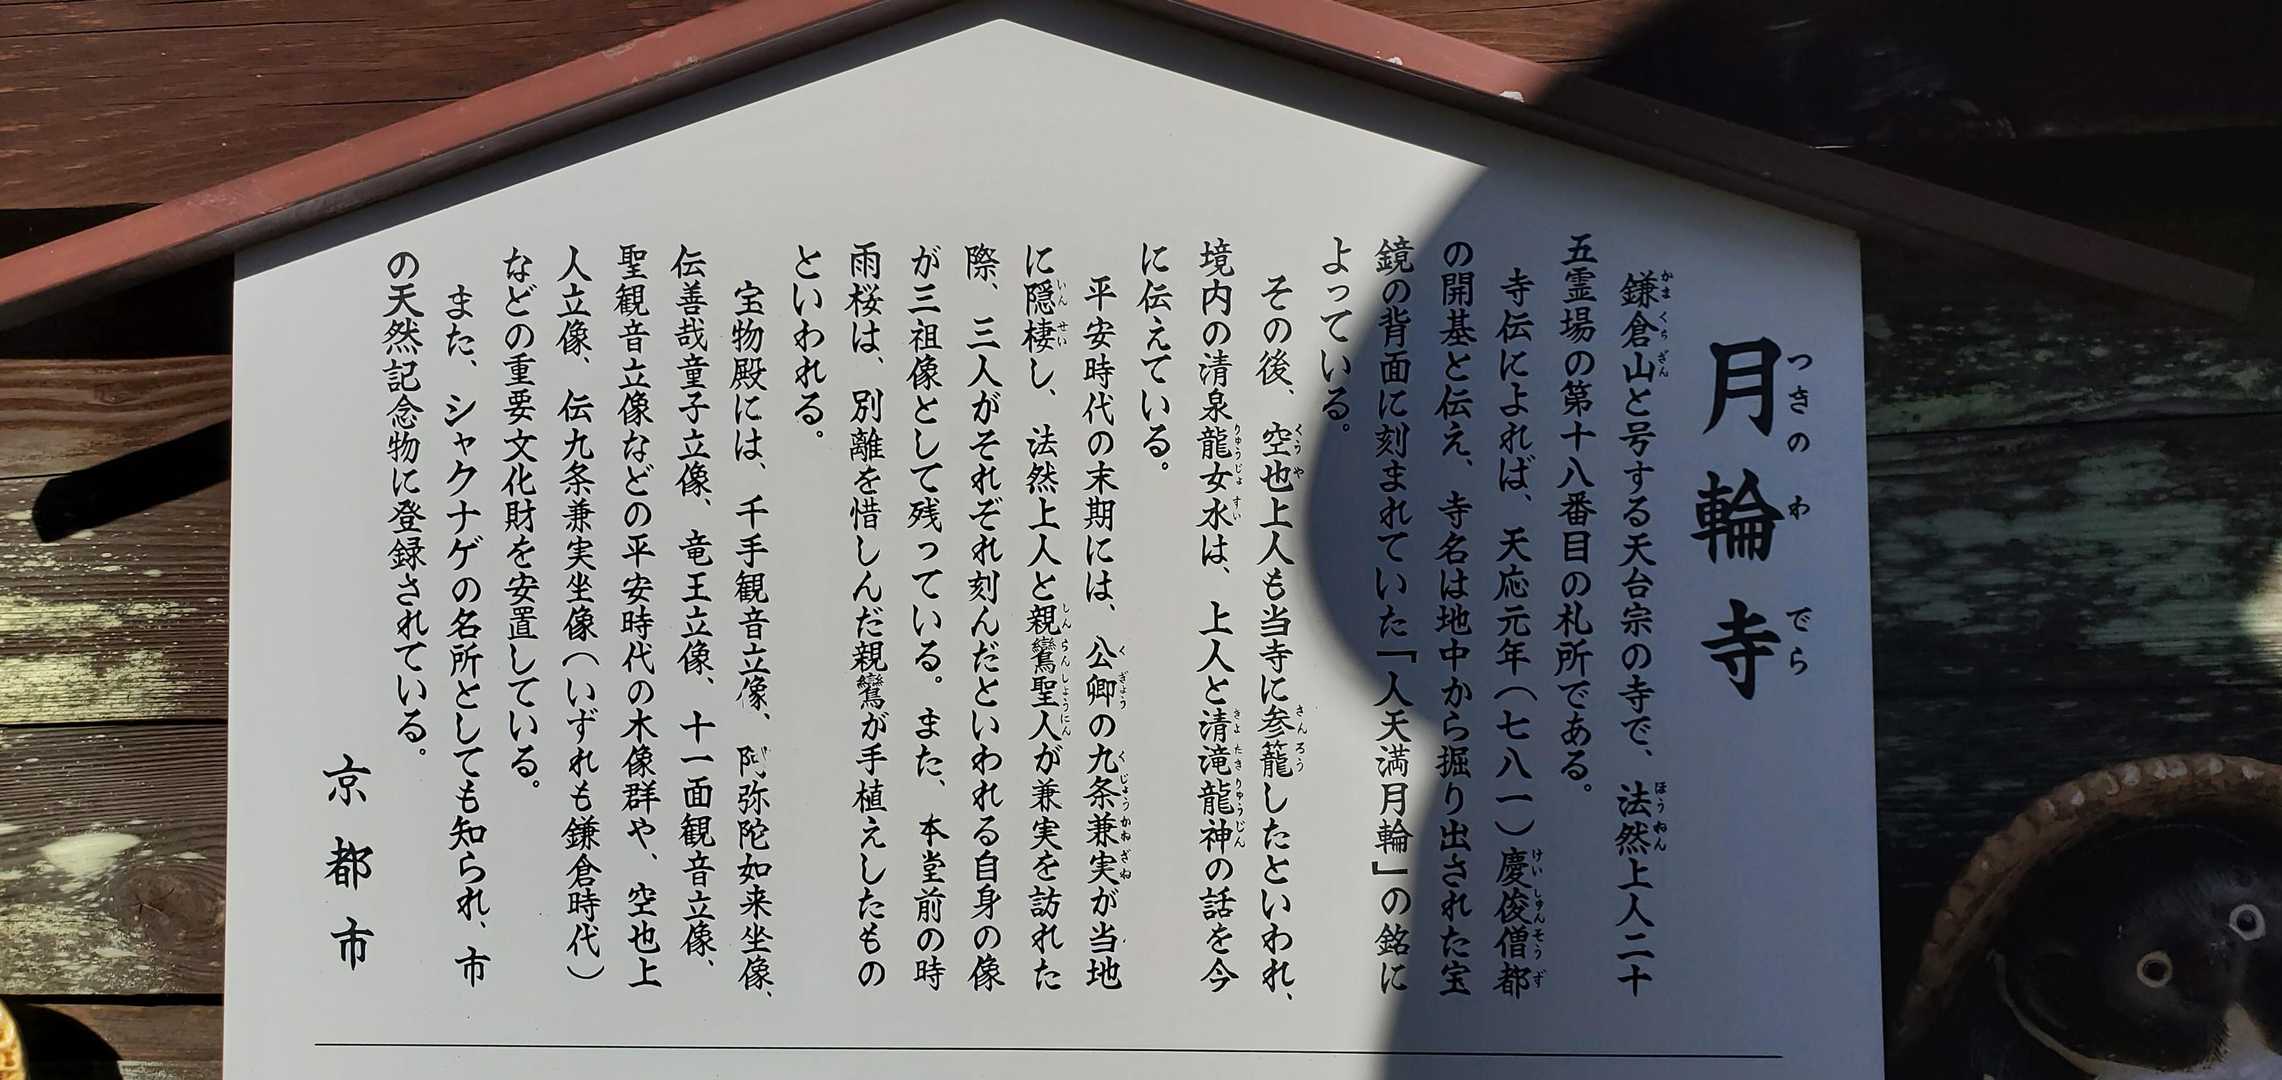 月輪寺
つきのわでら
鎌倉山と号する天台宗の寺で、法然上人二十
かまくらざん ほうねん
五霊場の第十八番目の札所である。
寺伝によれば、天応元年(七八一)慶俊僧都
けいしゅんそうず
の開基と伝え、寺名は地中から掘り出された宝
鏡の背面に刻まれていた「人天満月輪」の銘に
よっている。
その後、空也上人も当寺に参籠したといわれ、
くうや さんろう
境内の清泉龍女水は、上人と清滝龍神の話を今
りゅうじょすい きよたきりゅうじん
に伝えている。
平安時代の末期には、公卿の九条兼実が当地
くぎょう くじょうかねざね
に隠棲し、法然上人と親鸞聖人が兼実を訪れた
いんせい しんらんしょうにん
際、三人がそれぞれ刻んだといわれる自身の像
が三祖像として残っている。また、本堂前の時
雨桜は、別離を惜しんだ親鸞が手植えしたもの
といわれる。
宝物殿には、千手観音立像、阿弥陀如来坐像、
伝善哉童子立像、竜王立像、十一面観音立像、
聖観音立像などの平安時代の木像群や、空也上
人立像、伝九条兼実坐像(いずれも鎌倉時代)
などの重要文化財を安置している。
また、シャクナゲの名所としても知られ、市
の天然記念物に登録されている。
京都市